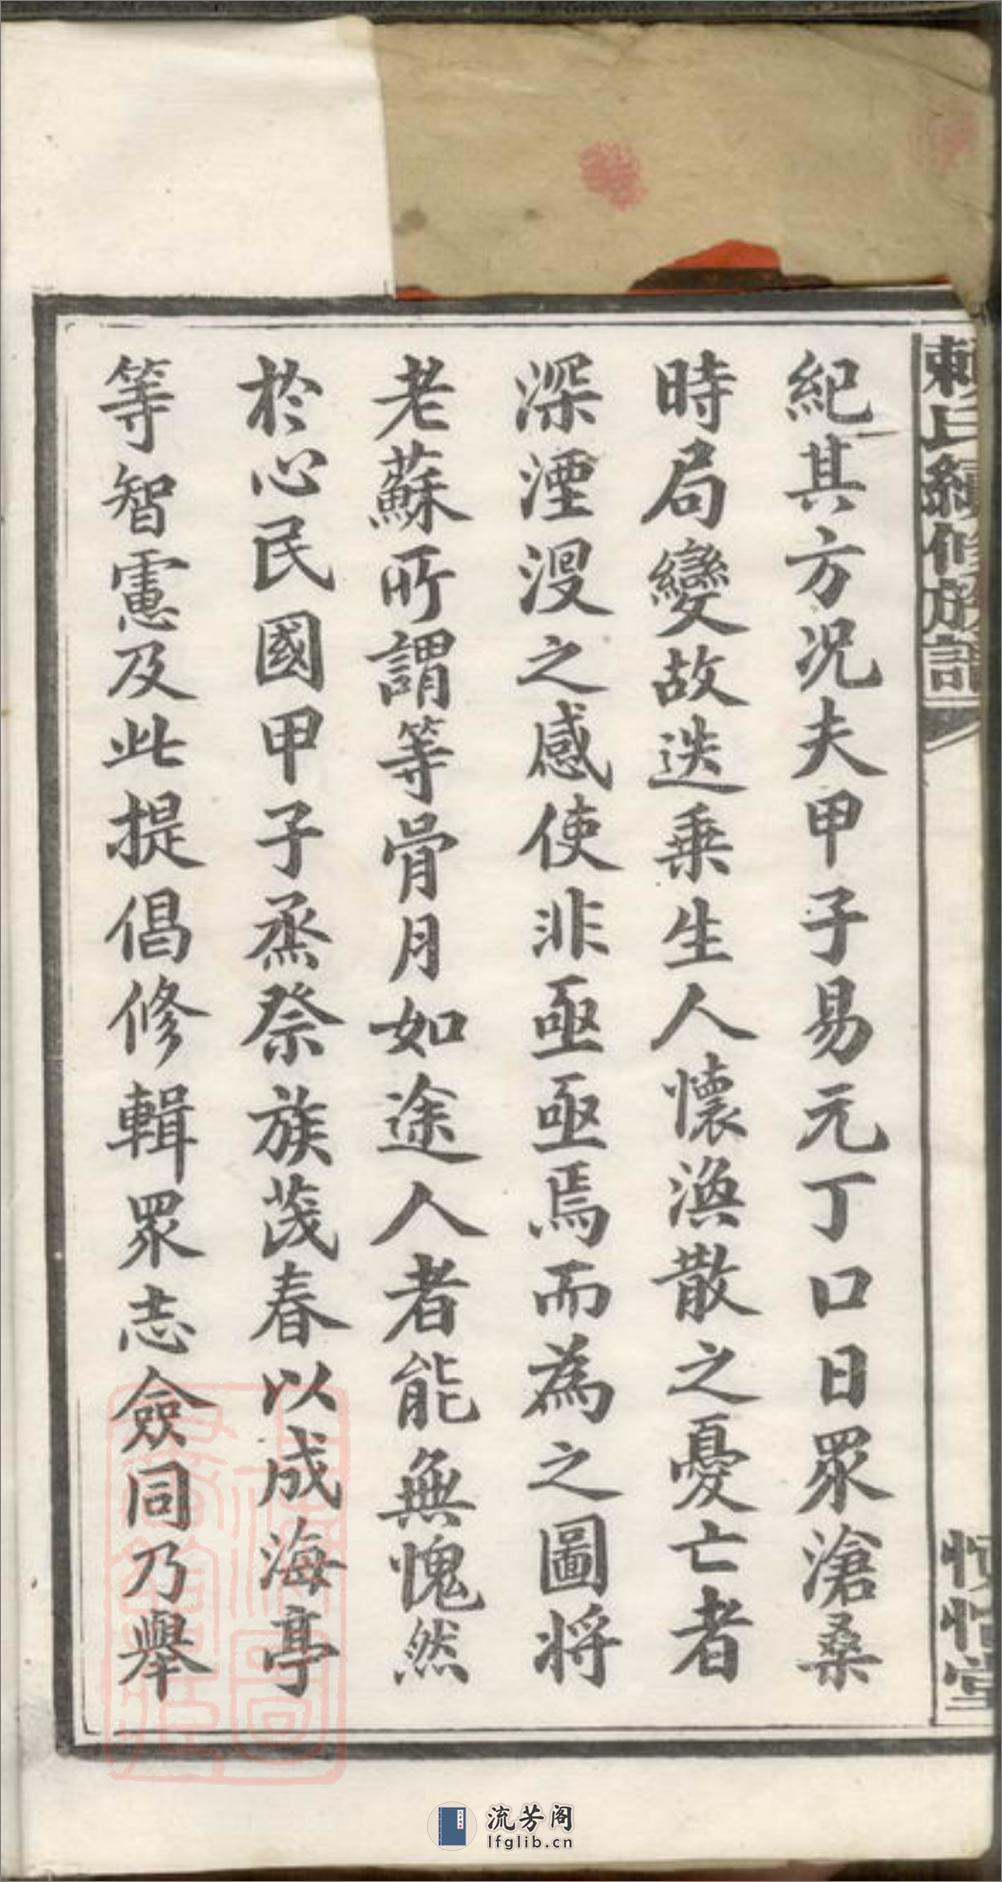 賴氏續修族譜
紀其方況夫甲子易元丁口日眾滄桑
時局變故迭乗生人懷渙散之憂亡者
深湮沒之感使非亟亟焉而為之圖將
老蘇所謂等骨月如途人者能無愧然
於心民國甲子烝祭族茂春以成海亭
等智慮及此提倡修輯眾志僉同乃舉
流芳阁
lfglib.cn